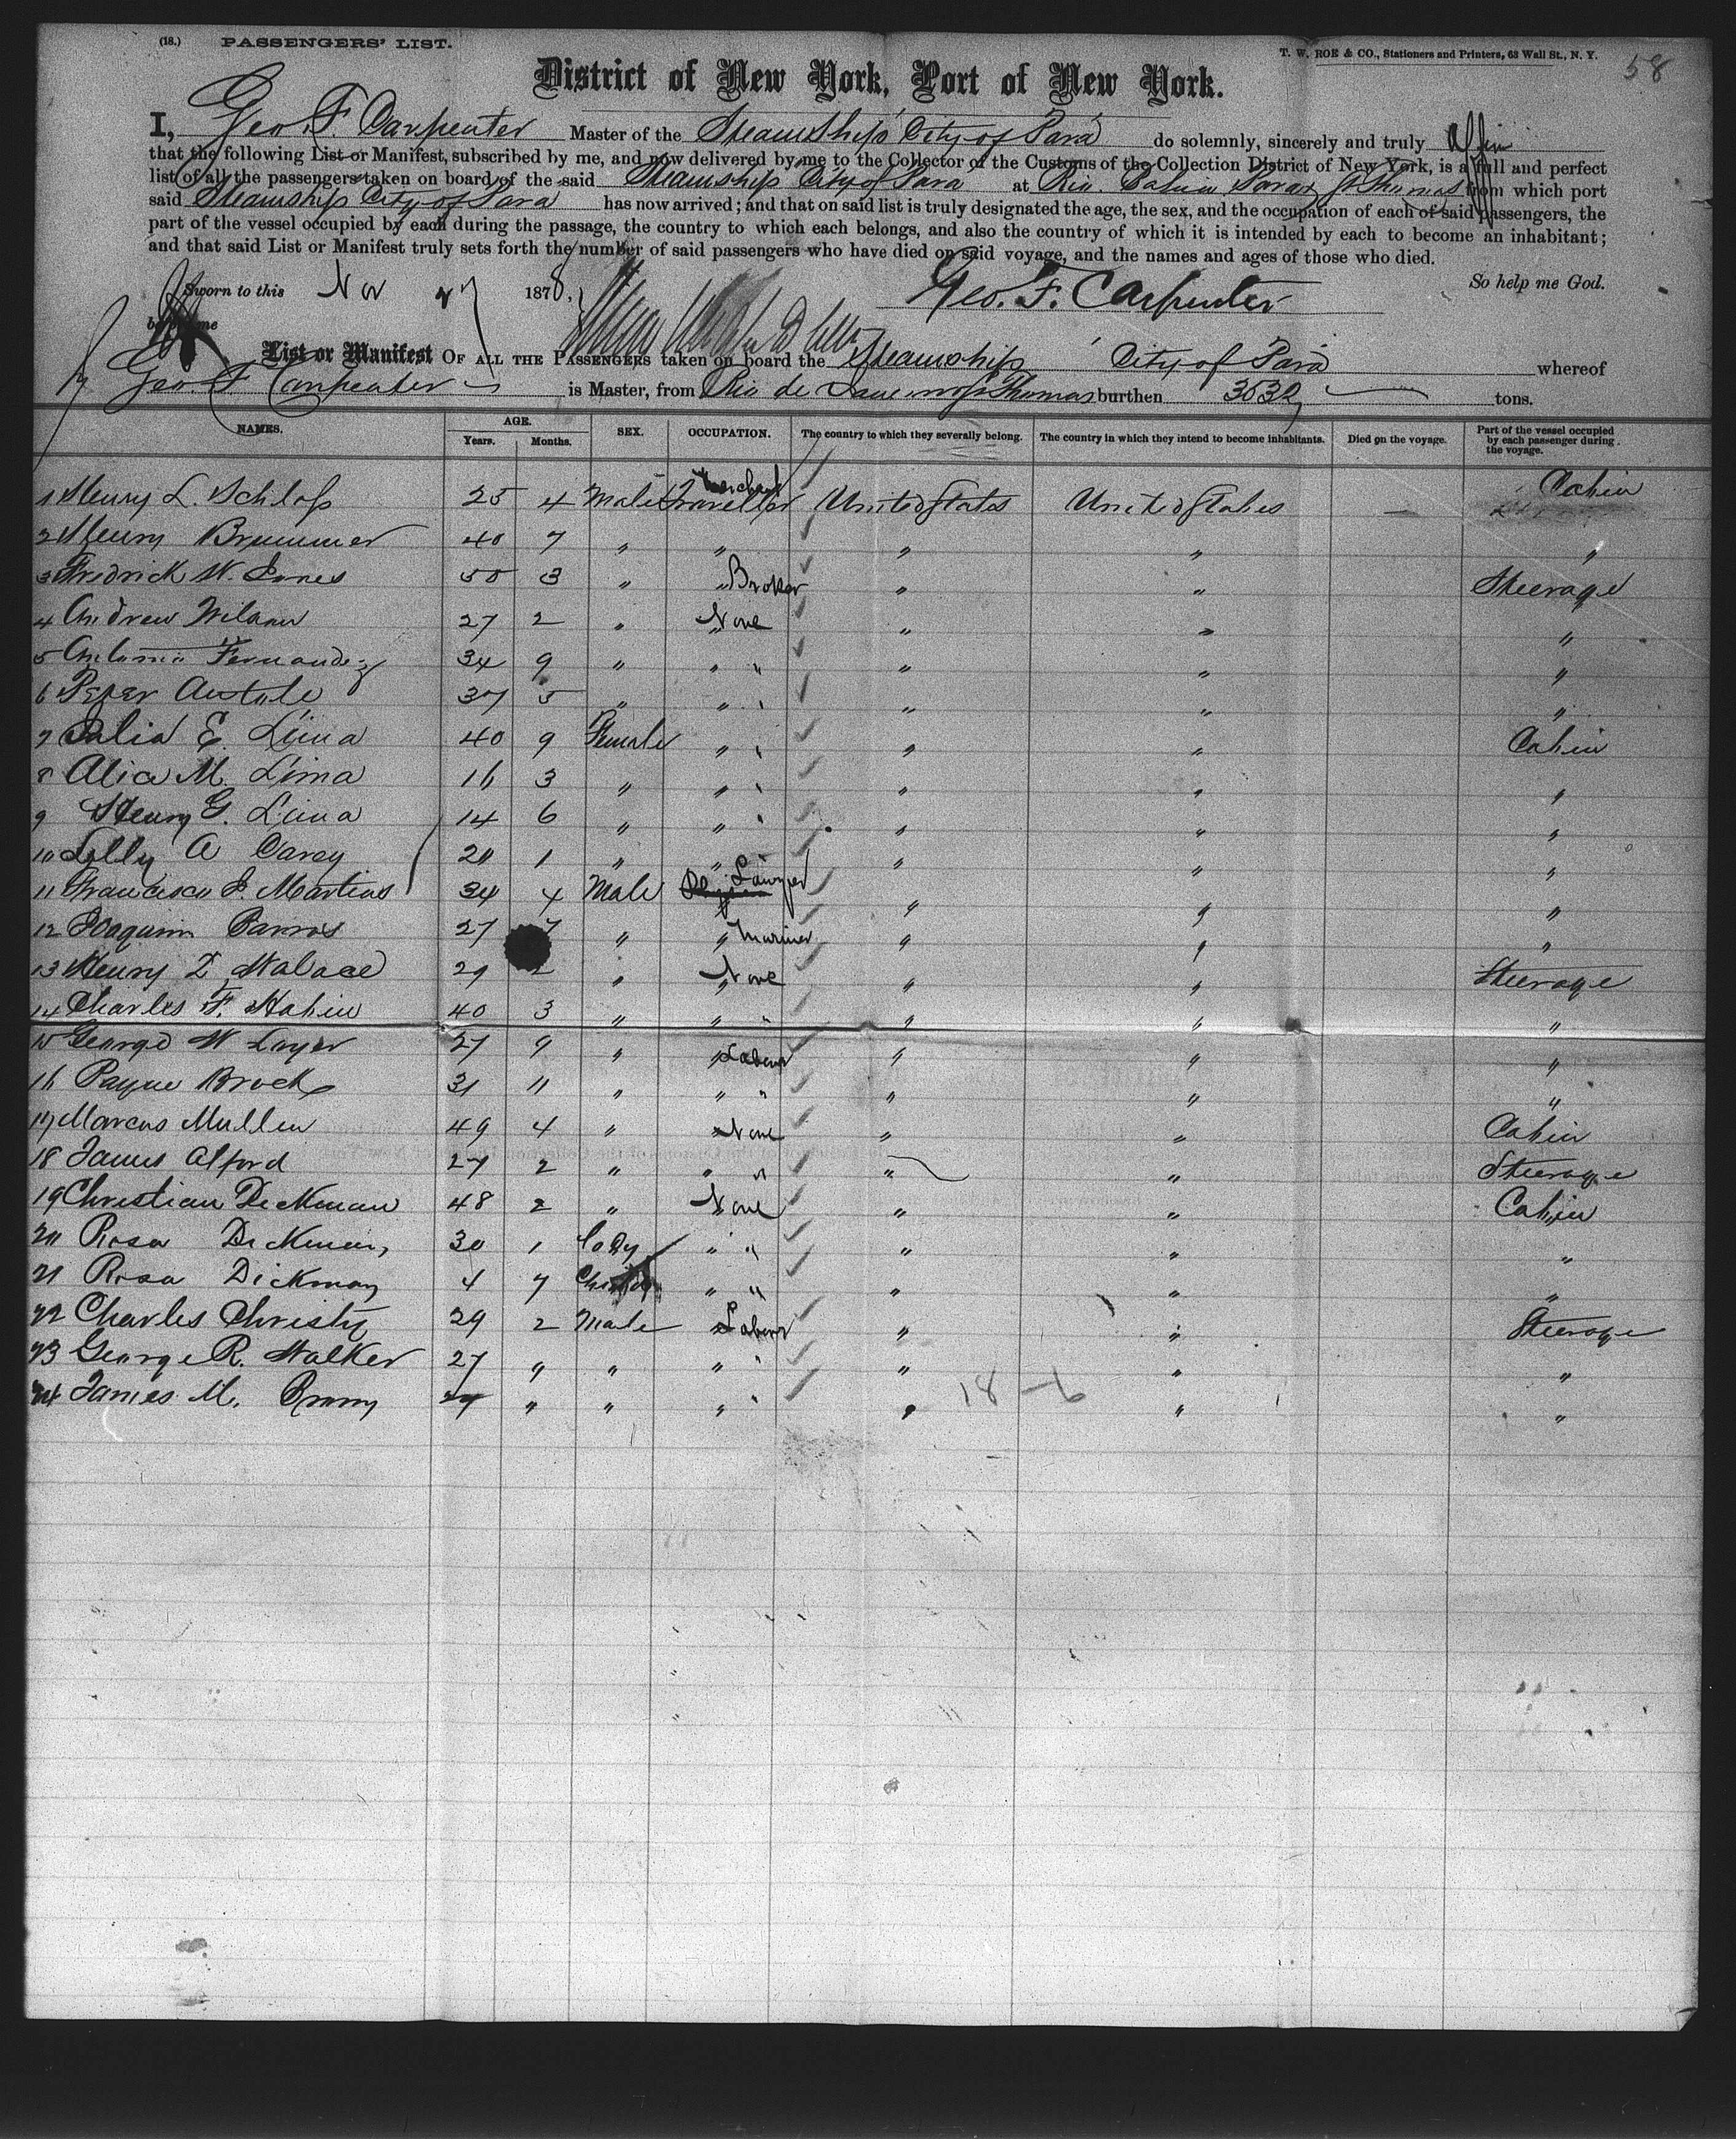 (18.) PASSENGERS' LIST.
T. W. ROE & CO., Stationers and Printers, 63 Wall St., N. Y.
58
District of New York, Port of New York.
I, Geo. F. Carpenter Master of the Steamship City of Para do solemnly, sincerely and truly Affirm
that the following List or Manifest, subscribed by me, and now delivered by me to the Collector of the Customs of the Collection District of New York, is a full and perfect
list of all the passengers taken on board of the said Steamship City of Para at Rio. Bahia Para & St Thomas from which port
said Steamship City of Para has now arrived; and that on said list is truly designated the age, the sex, and the occupation of each of said passengers, the
part of the vessel occupied by each during the passage, the country to which each belongs, and also the country of which it is intended by each to become an inhabitant;
and that said List or Manifest truly sets forth the number of said passengers who have died on said voyage, and the names and ages of those who died.
So help me God.
Sworn to this Nov 27 1878, Geo. F. Carpenter
before me
List or Manifest OF ALL THE PASSENGERS taken on board the Steamship City of Para whereof
Geo. F. Carpenter is Master, from Rio de Janeiro St Thomas burthen 3532 tons.
NAMES. AGE. Years. Months. SEX. OCCUPATION. The country to which they severally belong. The country in which they intend to become inhabitants. Died on the voyage. Part of the vessel occupied by each passenger during the voyage.
1 Henry L. Schloss 25 4 Male Merchant Traveller United States United States — Cabin
2 Henry Brummer 40 7 " " " " "
3 Fredrick W. Jones 50 3 " " Broker " " Steerage
4 Andrew Wilson 27 2 " None " " "
5 Antonio Fernandez 34 9 " " " " " "
6 Peter 37 5 " " " " " "
7 E. Lima 40 9 Female " " " " Cabin
8 Alice M. Lima 16 3 " " " " " "
9 Henry G. Lima 14 6 " " " " " "
10 Lilly A Carey 20 1 " " " " "
11 Francisco J. Martins 34 4 Male Lawyer " " "
12 Joaquim Barros 27 7 " " Mariner " " "
13 Henry Z Walace 29 2 " None " " Steerage
14 Charles F. Hahin 40 3 " " " " " "
15 George W Loyer 27 9 " Labour " " "
16 Payne Brock 31 11 " " " " " "
17 Marcus Mullen 49 4 " None " " Cabin
18 James Alford 27 2 " " " " " Steerage
19 Christian Deckman 48 2 " None " " Cabin
20 Rosa Deckman 30 1 Lady " " " " "
21 Rosa Dickman 4 7 Child " " " " "
22 Charles Christy 29 2 Male Labour " " Steerage
23 George R. Walker 27 " " " " " " "
24 James M. 27 " " " " " " "
18-6